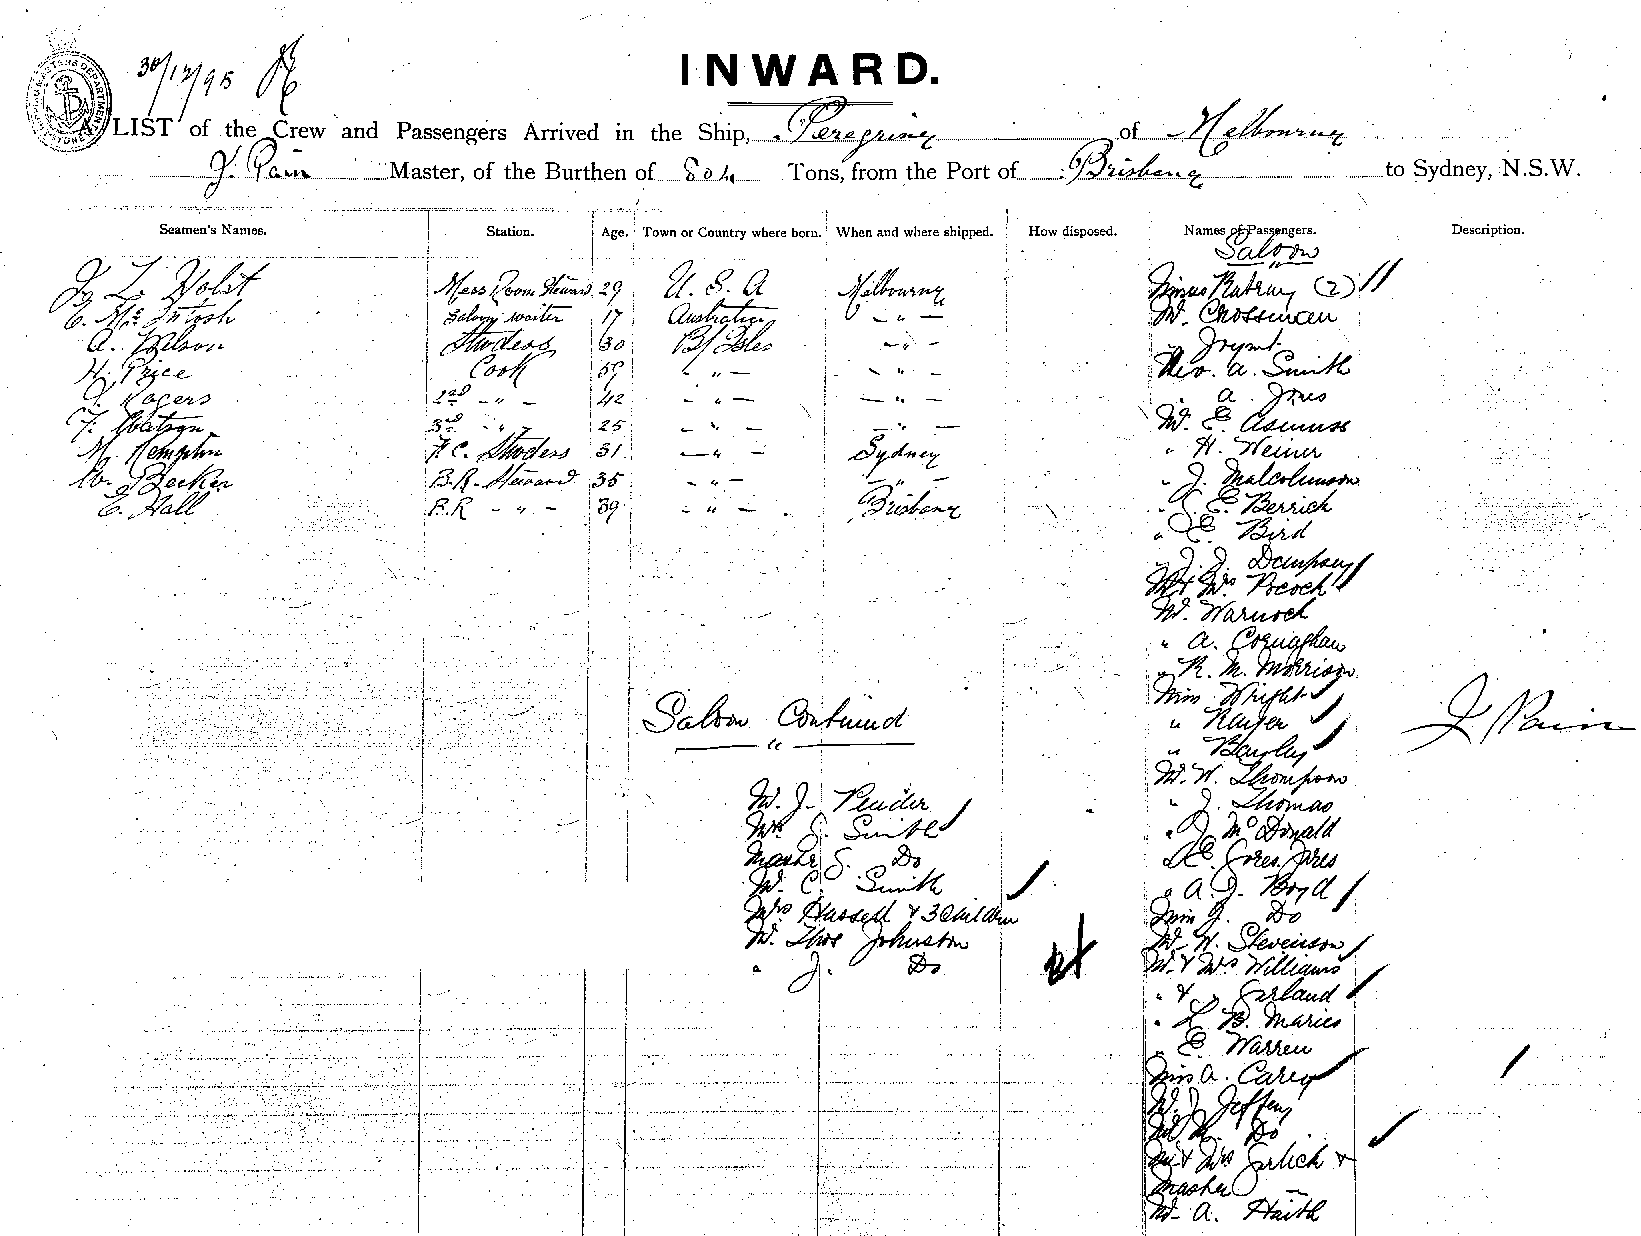 30/12/95
INWARD.
A LIST of the Crew and Passengers Arrived in the Ship, Peregrine of Melbourne
J. Pain Master, of the Burthen of 804 Tons, from the Port of Brisbane to Sydney, N.S.W.
Seamen's Names. Station. Age. Town or Country where born. When and where shipped. How disposed. Names of Passengers. Description.
Saloon
L. Holst Mess Room Steward 29 U. S. A Melbourne Misses Rattray (2)
E. McIntosh Saloon waiter 17 Australian - " - Mr. Crossman
A. Nelson Studess 30 B/ Isles - " - "
H. Price Cook 59 - " - - " - Rev. A. Smith
Rogers 2nd - " - 42 - " - - " - " A. Jones
F. Watson 3rd - " - 25 - " - - " - Mr. E. Asmuss
M. Kempton F.C. Studess 31 - " - Sydney " H. Weiner
W. Becker B.R. Steward 35 - " - - " - " J. Malcolmson
E. Hall B.R - " - 39 - " - Brisbane " E. Berrick
" E. Bird
" J. J. Dempsey
Mr & Mrs Pocock
Mr. Warnock
" A. Coznaghan
" R. M. Morrison
Miss Wright
Saloon Continued " J Pain
" Bayley
Mr. W. Thompson
Mr. J. Pender " J. Thomas
Mrs J. Smith " J. McDonald
Master S. Do " E.
Mr. C. Smith " A. J. Boyd
Mrs Hassell & 3 Children Miss J. Do
Mr. Thos Johnston Mr. H. Stevenson
" J. Do Mr & Mrs Williams
" & " Garland
" L B. Maries
" E. Warren
Miss A. Carey
Mr. J. Jeffery
Do
Mr & Mrs Gerlich &
Master -
Mr. A. Haith